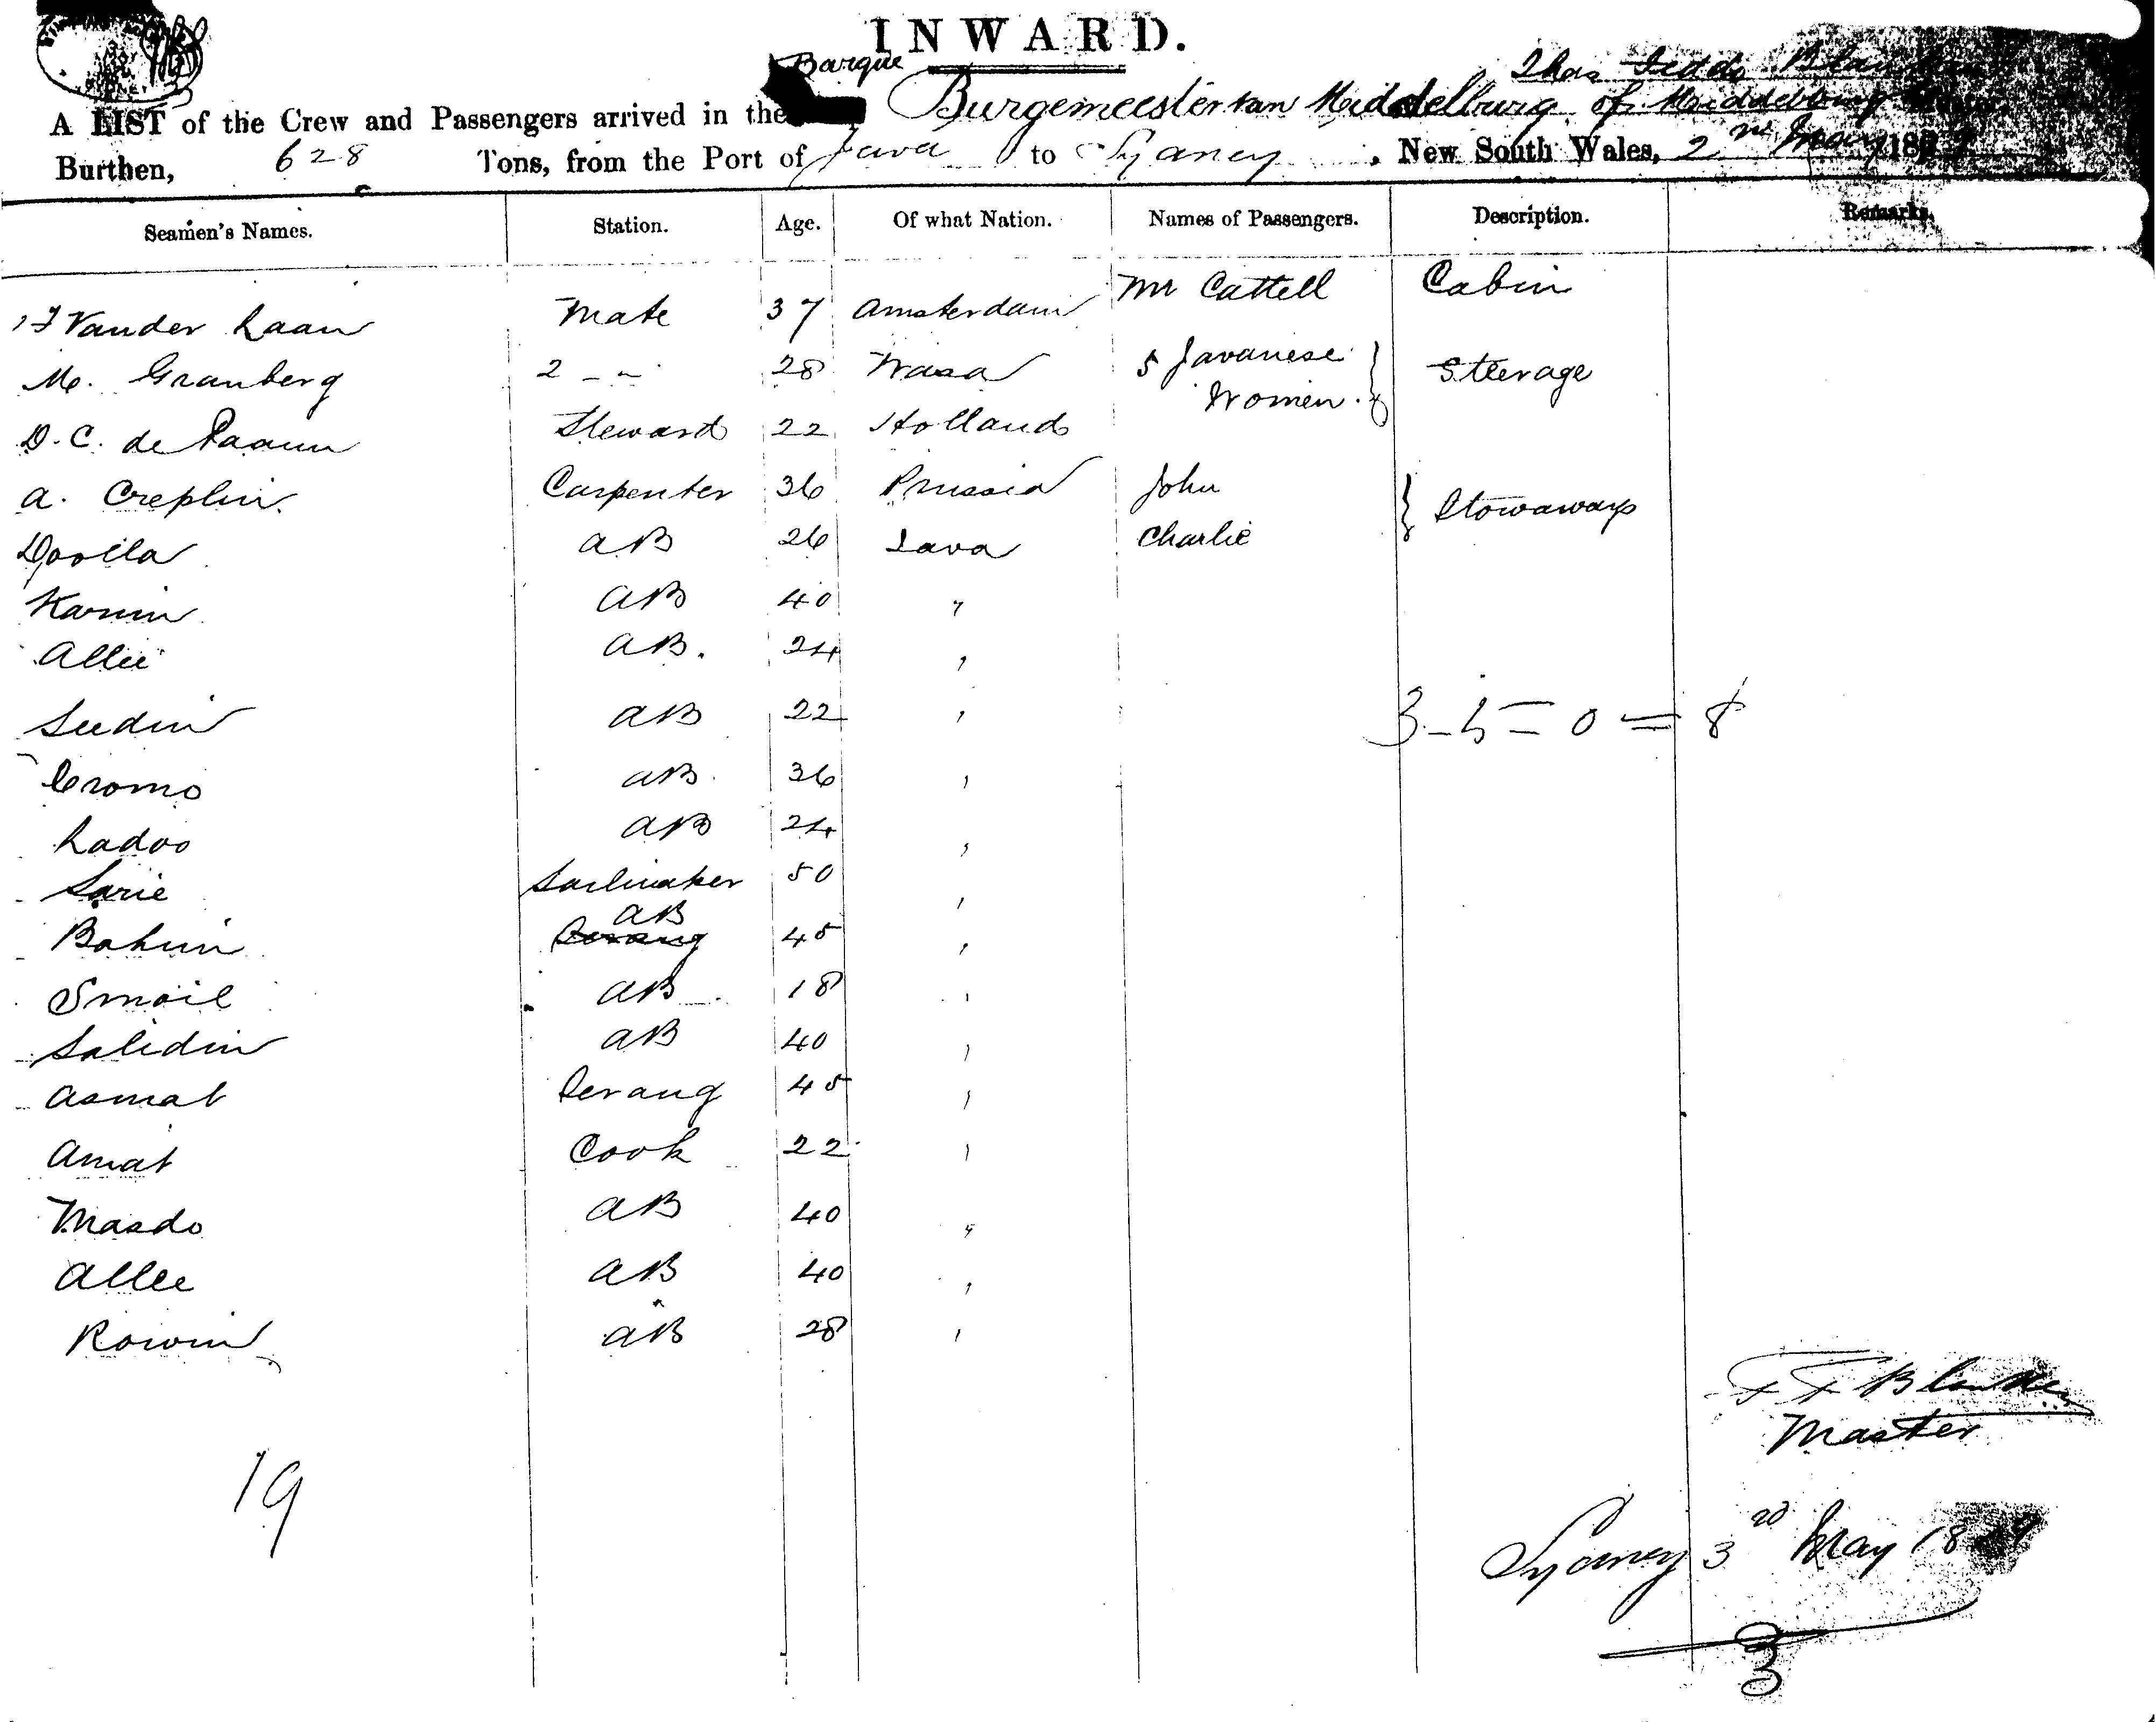 INWARD.
Barque
A LIST of the Crew and Passengers arrived in the Burgemeester van Middelburg of Middelburg
Burthen, 628 Tons, from the Port of Java to Sydney, New South Wales, 2nd May 18
Seamen's Names. Station. Age. Of what Nation. Names of Passengers. Description. Remarks.
Vander Laan Mate 37 Amsterdam Mr Cattell Cabin
M. Granberg 2 - " 28 Wasa 5 Javanese Women Steerage
D. C. de Paauw Steward 22 Holland
A. Creplin Carpenter 36 Prussia John Stowaways
AB 26 Java Charlie
Karim AB 40 "
Allie AB. 24 "
Seedin AB 22 "
Cromo AB 36 "
Ladoo AB 24 "
Sarie Sailmaker 50 "
AB
Bahim Serang 45 "
Smail AB 18 "
Salidin AB 40 "
Asmat Serang 45 "
Amat Cook 22 "
Masdo AB 40 "
Allee AB 40 "
Rowin AB 28 "
3-5=0=8
Master
19
Sydney 3rd May 18
3